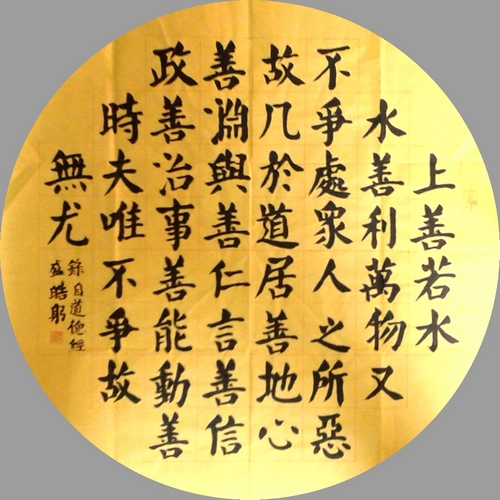 上善若水
水善利萬物又
不爭處衆人之所惡
故几於道居善地心
善淵與善仁言善信
政善治事善能動善
時夫唯不爭故
無尤
錄自道德經